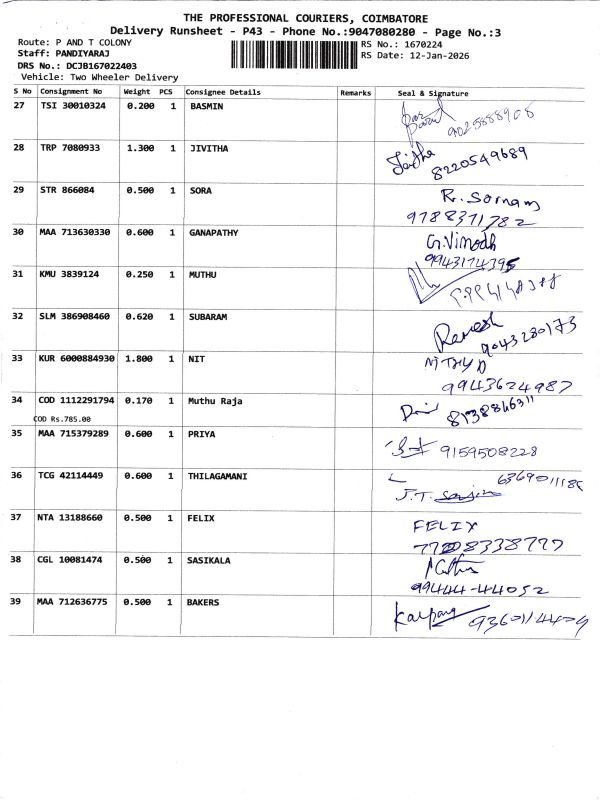 THE PROFESSIONAL COURIERS, COIMBATORE
Delivery Runsheet - P43 - Phone No.:9047080280 - Page No.:3
Route: P AND T COLONY
Staff: PANDIYARAJ
DRS No.: DCJB167022403
Vehicle: Two Wheeler Delivery
RS No.: 1670224
RS Date: 12-Jan-2026
S No Consignment No Weight PCS Consignee Details Remarks Seal & Signature
27 TSI 30010324 0.200 1 BASMIN
9025888908
28 TRP 7080933 1.300 1 JIVITHA
8220549689
29 STR 866084 0.500 1 SORA R. Sornam
9788371782
30 MAA 713630330 0.600 1 GANAPATHY G.Vinodh
9943174395
31 KMU 3839124 0.250 1 MUTHU
32 SLM 386908460 0.620 1 SUBARAM Ramesh
9043280173
33 KUR 6000884930 1.800 1 NIT NITHYA
9943624987
34 COD 1112291794 0.170 1 Muthu Raja
8138846311
COD Rs.785.00
35 MAA 715379289 0.600 1 PRIYA 9159508228
36 TCG 42114449 0.600 1 THILAGAMANI
J.T.
37 NTA 13188660 0.500 1 FELIX FELIX
38 CGL 10081474 0.500 1 SASIKALA
99444-44052
39 MAA 712636775 0.500 1 BAKERS Kalpana 9360114409